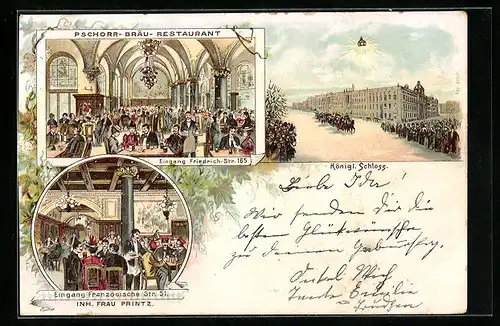 PSCHORR-BRÄU-RESTAURANT
Eingang Friedrich-Str. 165
Königl. Schloss.
Eingang Französische Str. 51.
INH. FRAU PRINTZ.
Liebe Ida!
Wir senden Dir die
besten Glückwünsche
zu deinem Geburtstag.
Onkel
Tante Emilie